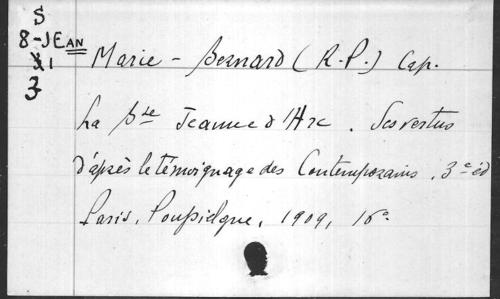 S
8-JEAN
XI
3
Marie - Bernard (R.P.) Cap.
La Bse Jeanne d'Arc. Ses vertus
d'après le témoignage des Contemporains, 3e éd
Paris, Poussielgue, 1909, 16°